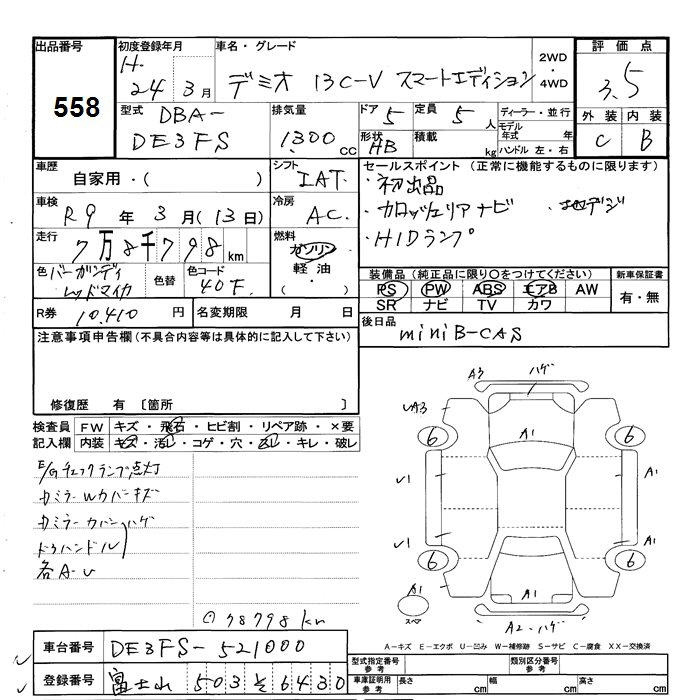 出品番号
558
初度登録年月
H-
24 3月
車名・グレード
デミオ 13C-V スマートエディション
2WD
・
4WD
評価点
3.5
外装 内装
C B
型式 DBA-
DE3FS
排気量
1300 CC
ドア 5
形状 HB
定員 5 人
積載 kg
ディーラー・並行
モデル
年式 年
ハンドル 左・右
車歴
自家用・( )
シフト
IAT
車検
R9 年 3月(13日)
冷房
AC
走行
7万8千798 km
燃料
ガソリン
軽油
・( )
色 バーガンディ
レッドマイカ
色替
色コード
40F
R券 10,410 円
名変期限 月 日
セールスポイント(正常に機能するものに限ります)
・初出品
・カロッツェリアナビ ・地デジ
・HIDランプ
装備品(純正品に限り○をつけてください)
PS PW ABS エアB AW
SR ナビ TV カワ
新車保証書
有・無
後日品
miniB-CAS
注意事項申告欄(不具合内容等は具体的に記入して下さい)
修復歴 有〔箇所 〕
検査員
記入欄
FW キズ・飛石・ヒビ割・リペア跡・×要
内装 キズ・汚レ・コゲ・穴・スレ・キレ・破レ
E/Gチェックランプ点灯
カバーキズ
ハゲ
ドアハンドル
各A-U
78798km
A3 ハゲ
A3
6 A1 6
U1 A1
A1
U1 A1
6 6
A1
A1
スペア
A2-ハゲ
A-キズ E-エクボ U-凹み W-補修跡 S-サビ C-腐食 XX-交換済
車台番号 DE3FS-521000
登録番号 富士山 503 6430
型式指定番号
参考
類別区分番号
参考
車庫証明用
参考
長さ cm 幅 cm 高さ cm